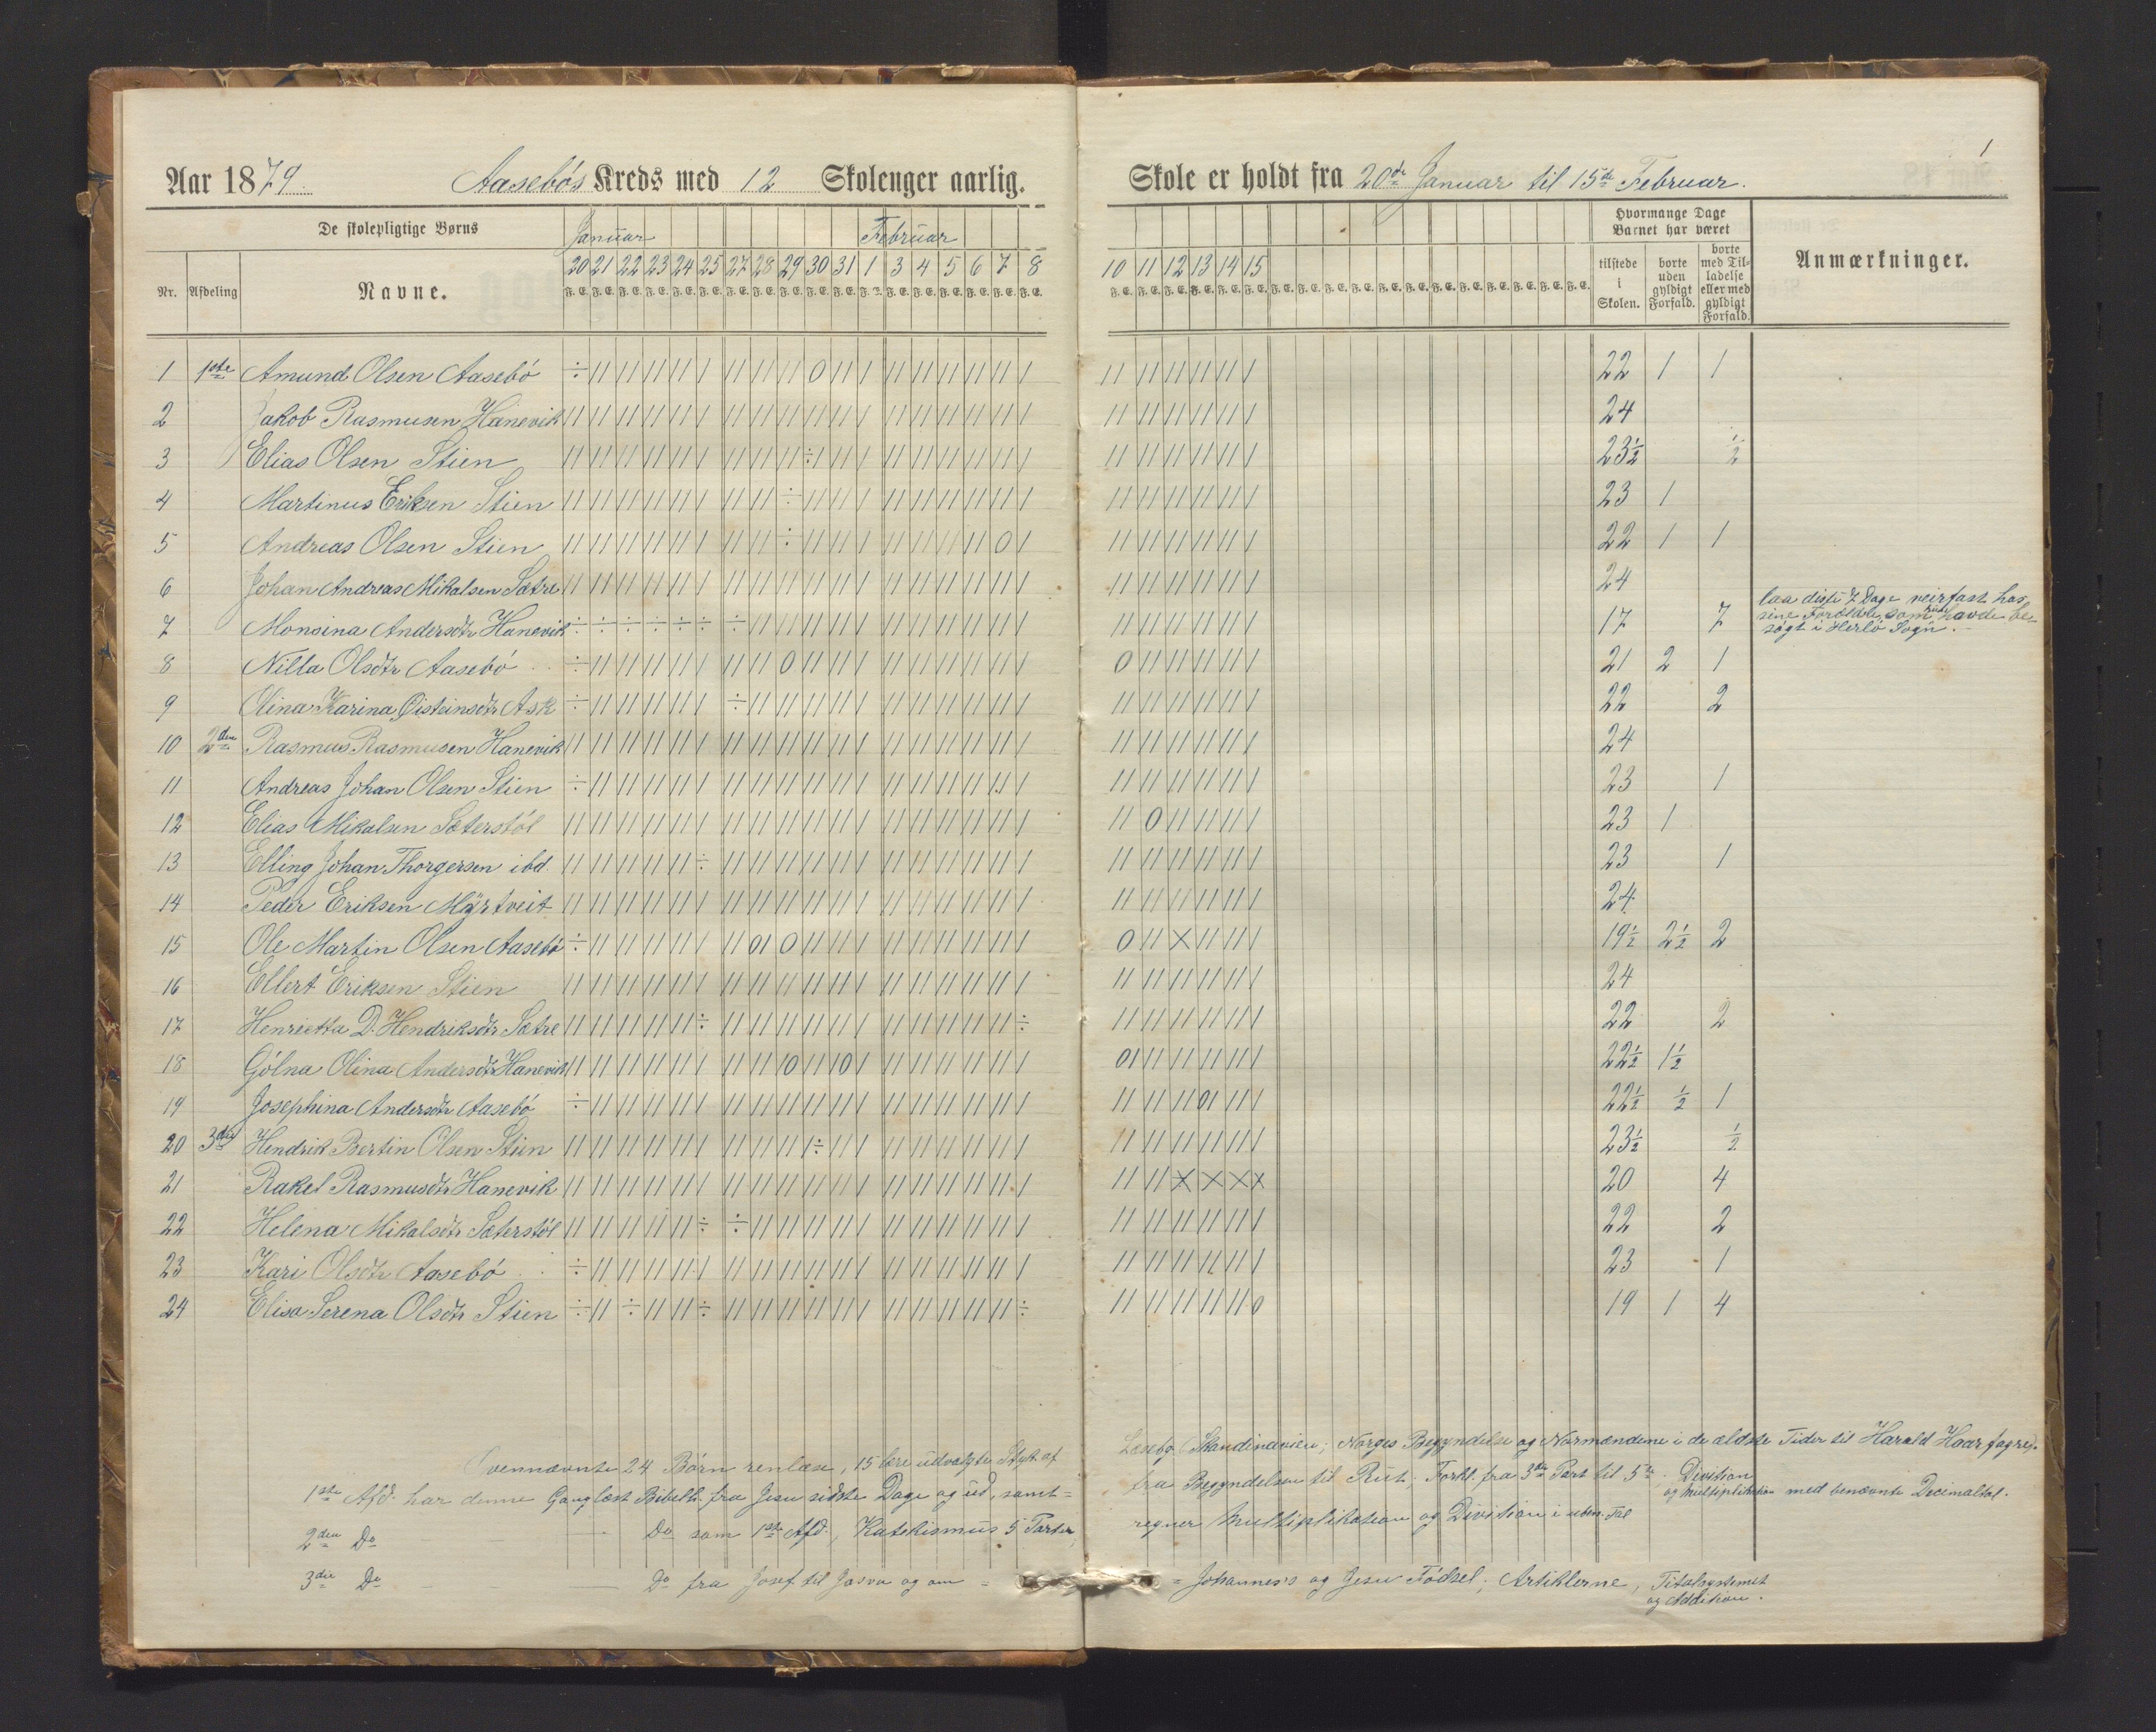 Aar 1879. Aasebøs Kreds med 12 Skoleuger aarlig.
De skolepligtige Børns
Januar Februar
Nr. Afdeling Navne. 20 21 22 23 24 25 27 28 29 30 31 1 3 4 5 6 7 8
F. E. F. E. F. E. F. E. F. E. F. E. F. E. F. E. F. E. F. E. F. E. F. E. F. E. F. E. F. E. F. E. F. E. F. E.
1 1ste Amund Olsen Aasebö
2 Jakob Rasmusen Hanevik
3 Elias Olsen Stien
4 Martinus Eriksen Stien
5 Andreas Olsen Stien
6 Johan Andreas Mikalsen Sætre
7 Monsina Andersdtr Hanevik
8 Nilla Olsdtr Aasebö
9 Olina Karina Öisteinsdtr Ask
10 2den Rasmus Rasmusen Hanevik
11 Andreas Johan Olsen Stien
12 Elias Mikalsen Sæterstöl
13 Elling Johan Thorgersen ibd.
14 Peder Eriksen Myrtveit
15 Ole Martin Olsen Aasebö
16 Ellert Eriksen Stien
17 Henrietta D. Hendriksdtr Sætre
18 Gölna Olina Andersdtr Hanevik
19 Josephina Andersdtr Aasebö
20 3die Hendrik Bertin Olsen Stien
21 Rakel Rasmusdtr Hanevik
22 Helena Mikalsdtr Sæterstöl
23 Kari Olsdtr Aasebö
24 Elisa Serena Olsdtr Stien
Ovennævnte 24 Børn renlæse, 15 lære udvalgte Stykr af
1ste Afd. har denne Gang læst Bibelh. fra Jesu sidste Dage og ud, samt
2den Do Do som 1ste Afd., Katekismus 5 Parter,
3die Do Do fra Josef til Josva og om
1
Skole er holdt fra 20de Januar til 15de Februar.
Hvormange Dage
Barnet har været
10 11 12 13 14 15
tilstede i Skolen. borte uden gyldigt Forfald. borte med Tilladelse eller med gyldigt Forfald. Anmærkninger.
22 1 1
24
23½ ½
23 1
22 1 1
24
17 7 laa disse 7 Dage veirfast hos
sine Forældre, som hun havde be-
søgt i Herlö Sogn.
21 2 1
22 2
24
23 1
23 1
23 1
24
19½ 2½ 2
24
22 2
22½ 1½
22½ ½ 1
23½ ½
20 4
22 2
23 1
19 1 4
Læsebg. (Skandinavien; Norges Begyndelse og Normændene i de ældste Tider til Harald Haarfagre).
fra Begyndelsen til Rut; Forkl. fra 3die Part til 5te. Division
og Multiplikation med benævnte Decimaltal.
regner Multiplikation og Division i uben. Tal
Johannes's og Jesu Födsel; Artiklerne, Titalsystemet
og Addition.